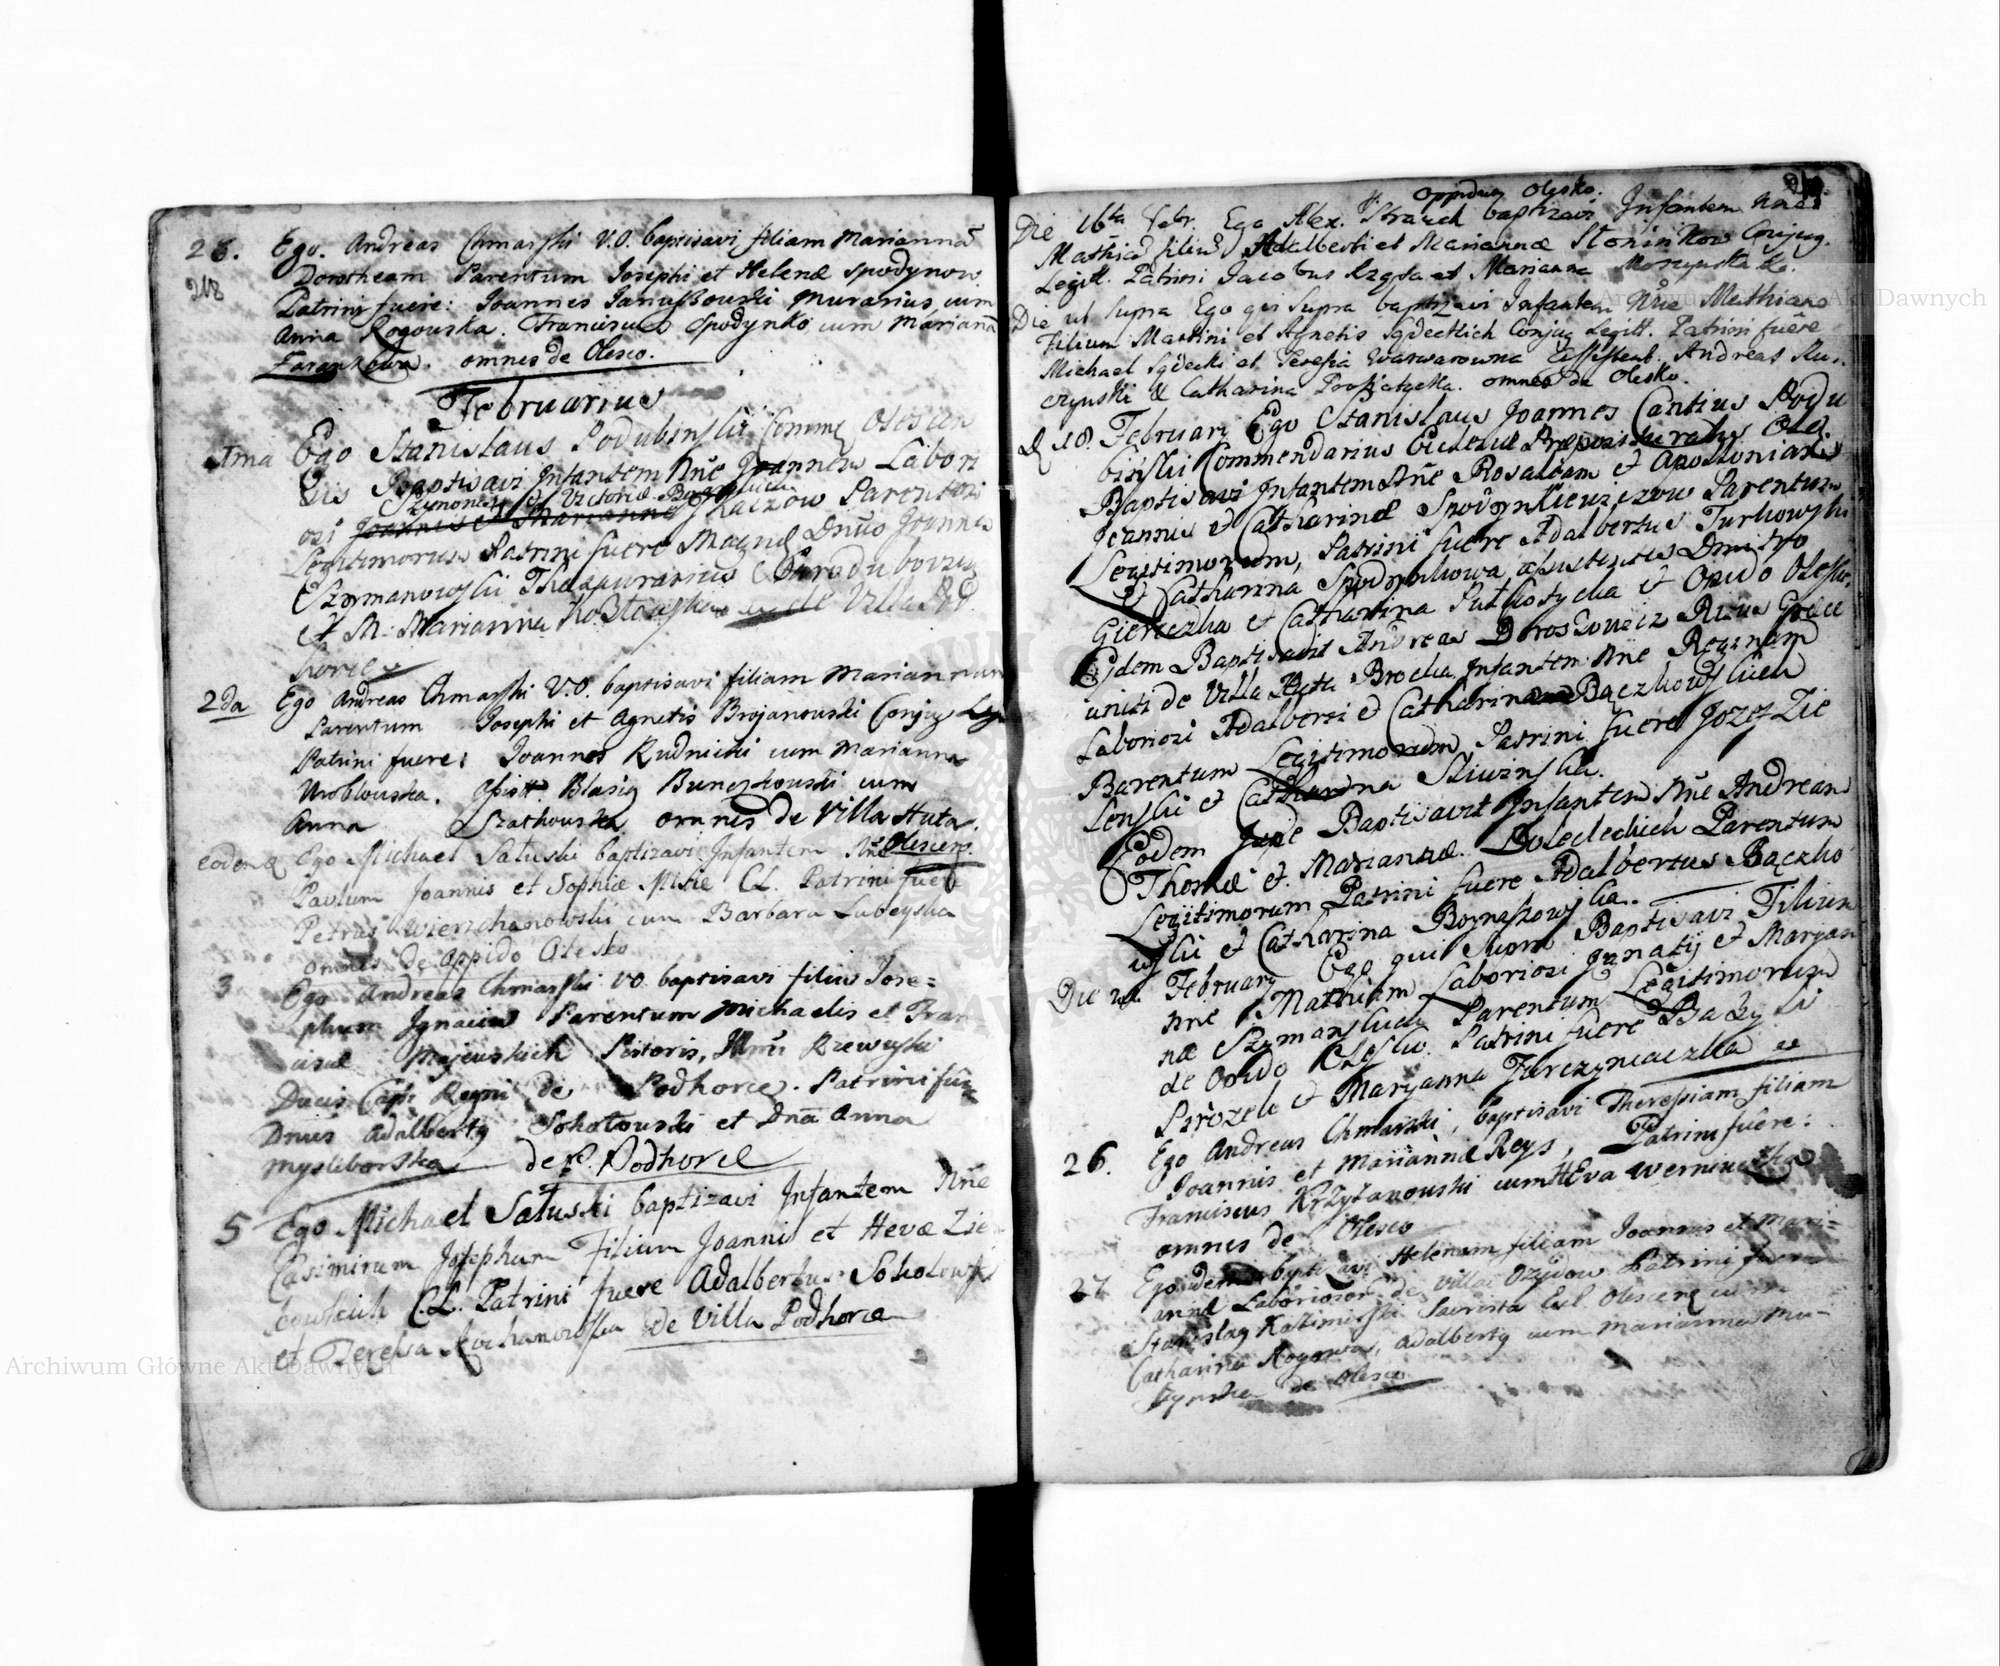 28. Ego. Andreas Chmarski V.O. baptisavi filiam Mariannã
218 Dorotheam Parentum Josephi et Helenæ Spodynow
Patrini fuere: Joannes Januszowski murarius cum
Anna Rogowska. Franciscus Spodynko cum Mariañã
Farankowa. omnes de Olesco.
Februarius
1ma Ego Stanislaus Podubinski Comme Olescen
sis Baptisavi Infantem Nñe Joannem Labori
Szymonis et Victoriæ
osi Joannis et Mariannæ Parentum
Legitimorum Patrini fuere Magne Dñus Joannes
Szymanowski Thesaurarius
et M. Marianna de Villa Pod
horce
2da Ego Andreas Chmarski V.O. baptisavi filiam Mariannam
Parentum Josephi et Agnetis Brojanowski Conjug Leg
Patrini fuere: Joannes Rudnicki cum Marianna
Wroblowska. Assist. Blasig Bunczkowski cum
Anna Szatkowska omnes de Villa Huta
Olescen.
eodem Ego Michael Satuski baptizavi Infantem Nñe
Paulum Joannis et Sophiæ CL. Patrini fuere
Petrus Wierzchanowski cum Barbara Lubeyska
omnes de Oppido Olesko
3 Ego Andreas Chmarski VO baptisavi filiũ Jose=
phum Ignaciũ Parentum Michaelis et Fran
cisæ Majewskich Pistoris, Rzewuski
Ducis Capi Regni de Podhorce. Patrini fuẽ
Dnus Adalbertg Sokołowski et Dnã Anna
Mysliborska de V. Podhorce
5 Ego Michael Satuski baptizavi Infantem Nñe
Casimirum Josephum Filium Joannis et Hevæ Zie
lowskich C.L. Patrini fuere Adalbertus Sokolowski
et Teressa Kochanowska de Villa Podhorce
Oppidum Olesko.
Die 16ta Febr. Ego Alex. Strauch baptizavi Infantem Nñe
Mathiã filiũ Adalberti et Mariannæ Słoninkow Conjug.
Legitt. Patrini Jacobus Rzęsa et Marianna Morzynska
Die ut supra Ego qui supra baptizavi Infantem Nñe Mathiam
Filium Martini et Agnetis Sędeckich Conjug Legitt. Patrini fuẽre
Michael Sędecki et Teresia Warwarowna Assistent. Andreas Ku
czynski & Catharina omnes de Olesko.
D. 18. February Ego Stanislaus Joannes Cantius Podu
binski Commendarius Ecclesiæ Præposituralis Oles.
Baptisavi Infantem Nñe Rosaliam et Apolloniam
Joannis et Catharinæ Spodynkiewiczow Parentum
Legitimorum, Patrini fuere Adalbertus Turkowski
et Catharina Spodynkowa assistentes Dmitro
Giereczka et Catharina et Opido Olesko.
Eodem Baptisavit Andreas Doroszowicz Ritus Græci
uniti de Villa Huta Brocka Infantem Nñe Reginam
Laboriosi Adalberti et Catharinæ Bączkowskich
Parentum Legitimorum Patrini fuere Jozef Zie
lenski et Catharina Sliwinska.
Eodem Baptisavit Infantem Nñe Andream
Thomæ et Mariannæ Boleleckich Parentum
Legitimorum Patrini fuere Adalbertus Bączko
wski et Catharina Boynaszowska.
Die 21 February Ego qui supra Baptisavi Filium
Nñe Mathiam Laboriosi Ignatij et Maryan
næ Szymanskich Parentum Legitimorum
de Opido Olesko. Patrini fuere Bazyli
Perozek et Maryanna Jurczyniaczka
26. Ego Andreas Chmarski, baptisavi Theressiam filiam
Joannis et Mariannæ Reys, Patrini fuêre:
Franciscus Krzyżanowski cum Eva
omnes de Olesco
27 Ego idem baptisavi Helenam filiam Joannis et Mari=
annæ Laboriosor. de Villa Ożydow Patrini fuere
Stanislag Kazimirski Sacrista Ecl. Olescen cum
Catharina Rogowa, Adalbertg cum Marianna Mu-
de Olesco